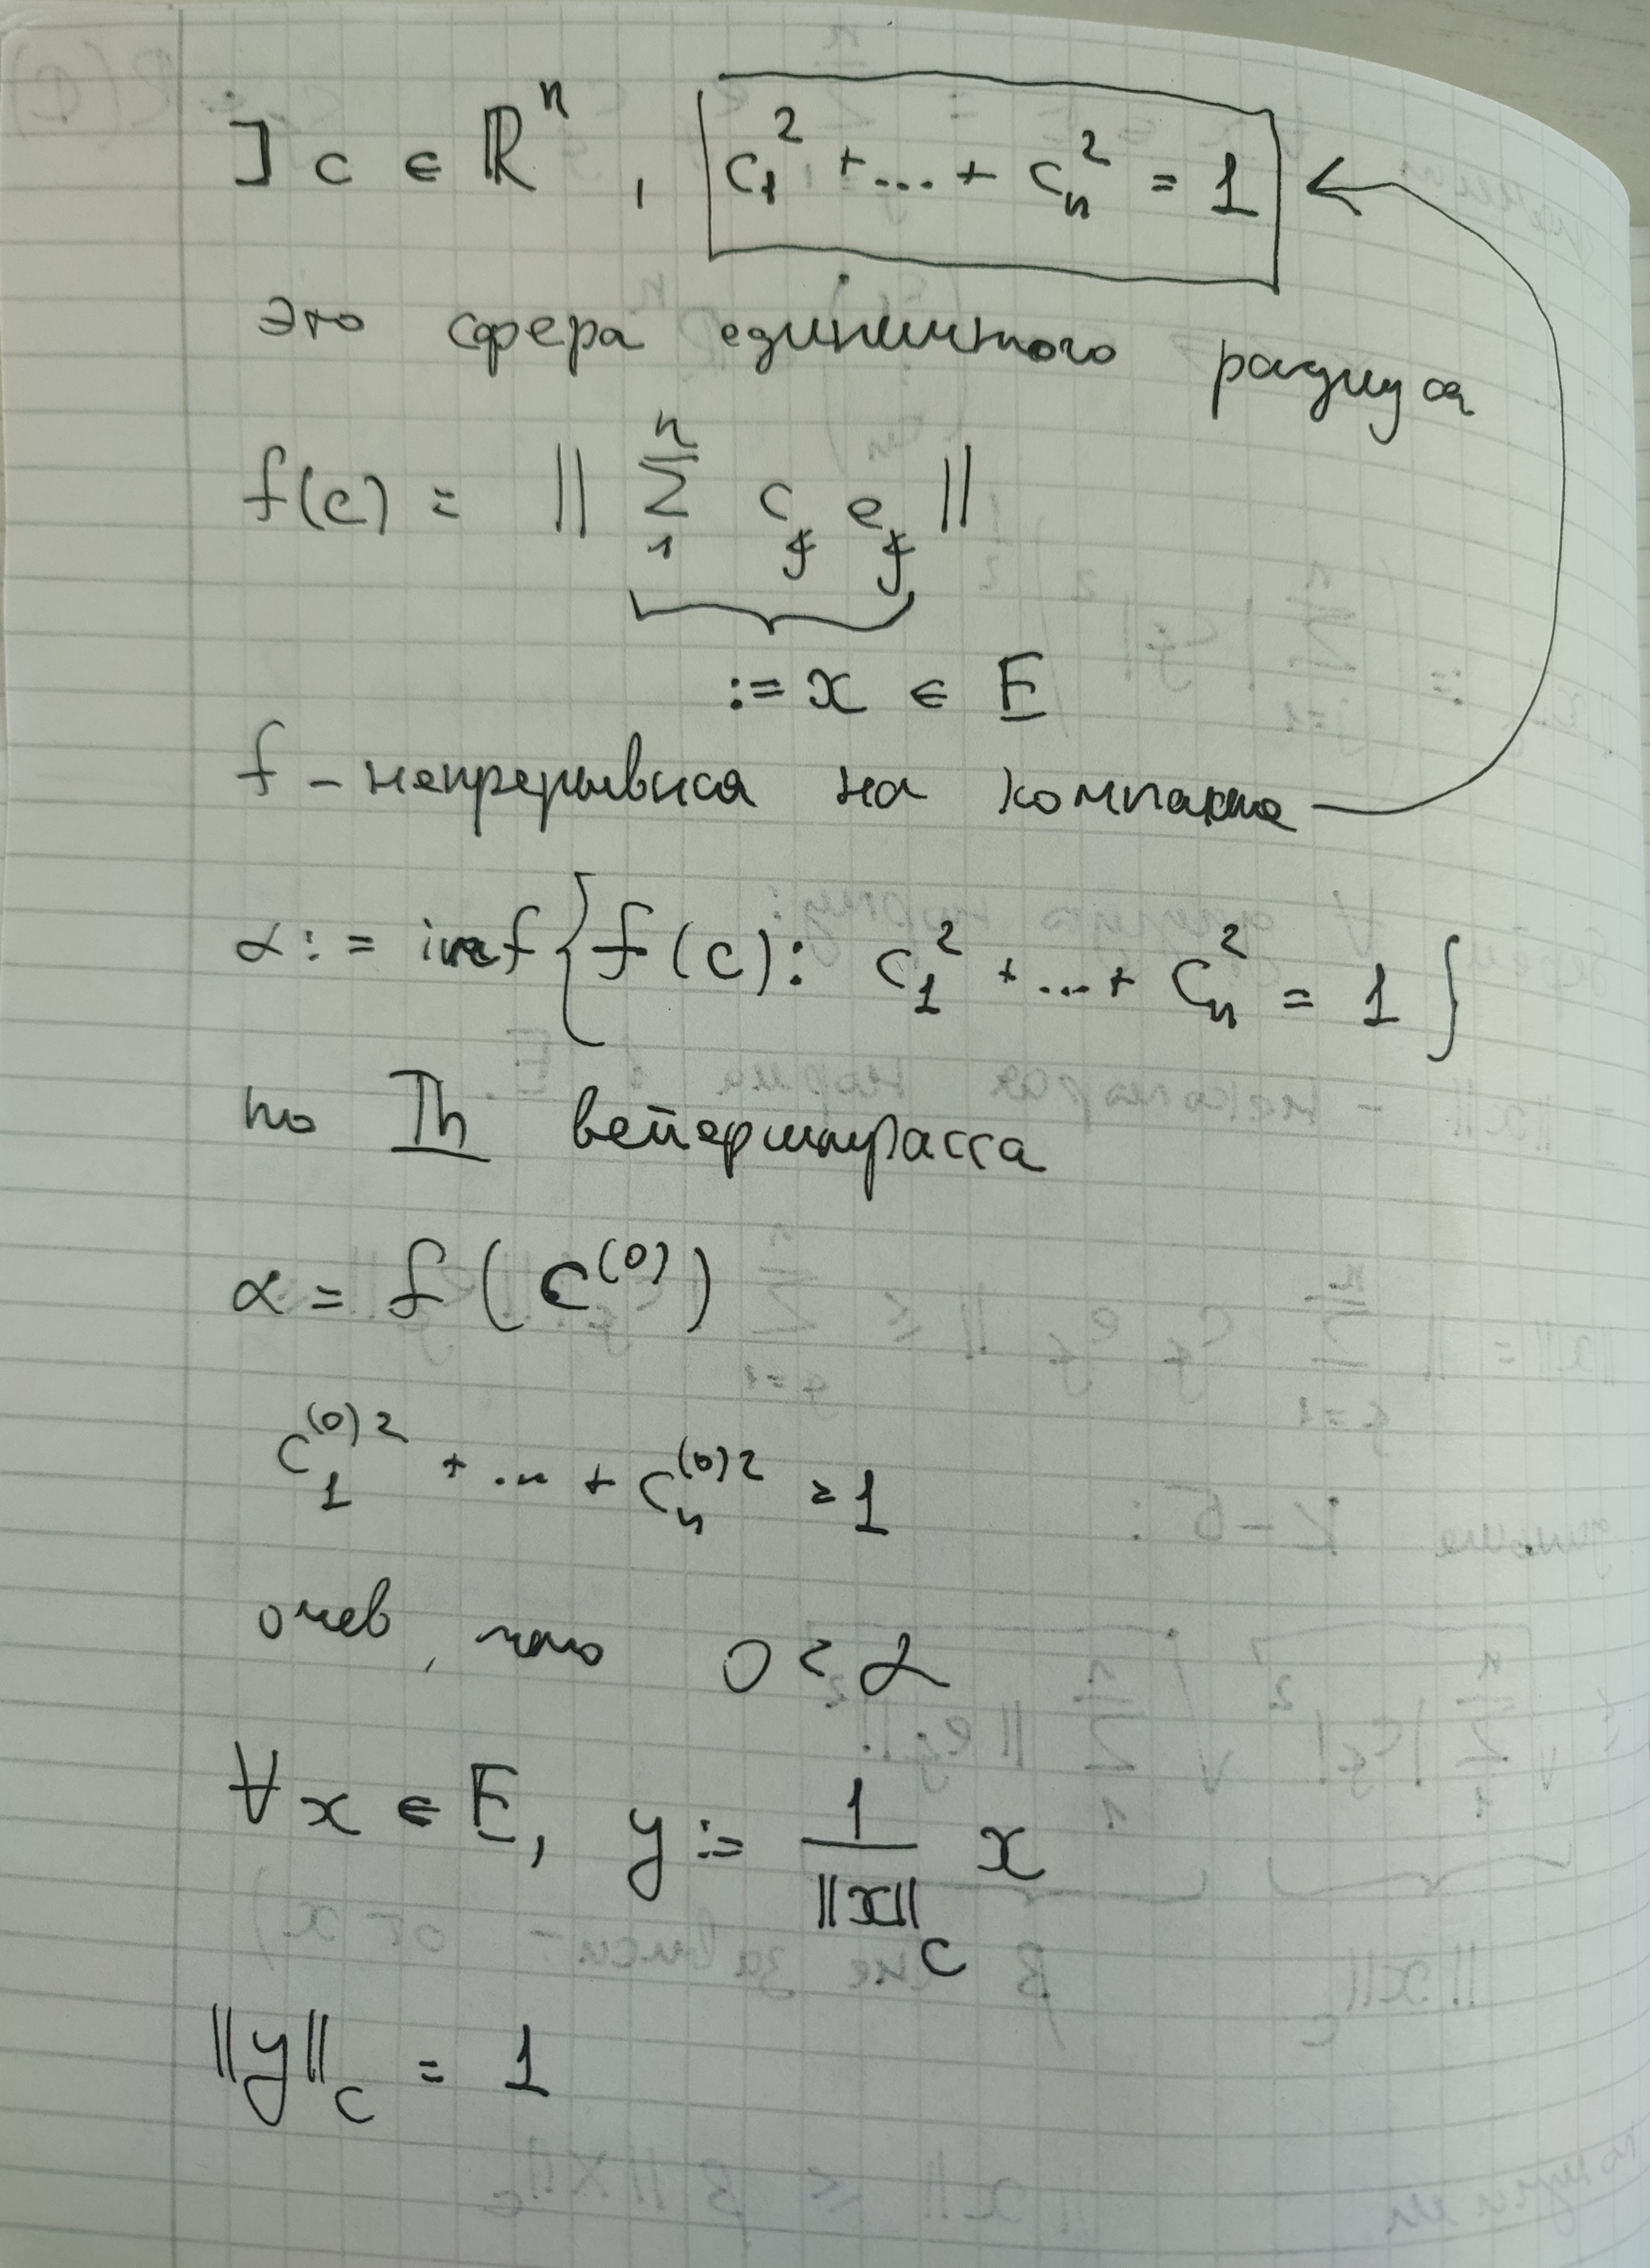 ] c ∈ ℝⁿ, c₁² + ... + cₙ² = 1
это сфера единичного радиуса
f(c) = || Σ₁ⁿ cⱼ eⱼ ||
:= x ∈ E
f – непрерывная на компакте
α := inf { f(c): c₁² + ... + cₙ² = 1 }
по Th вейерштрасса
α = f(c⁽⁰⁾)
c₁⁽⁰⁾² + ... + cₙ⁽⁰⁾² = 1
очев, что 0 < α
∀x ∈ E, y := 1/||x||_c x
||y||_c = 1